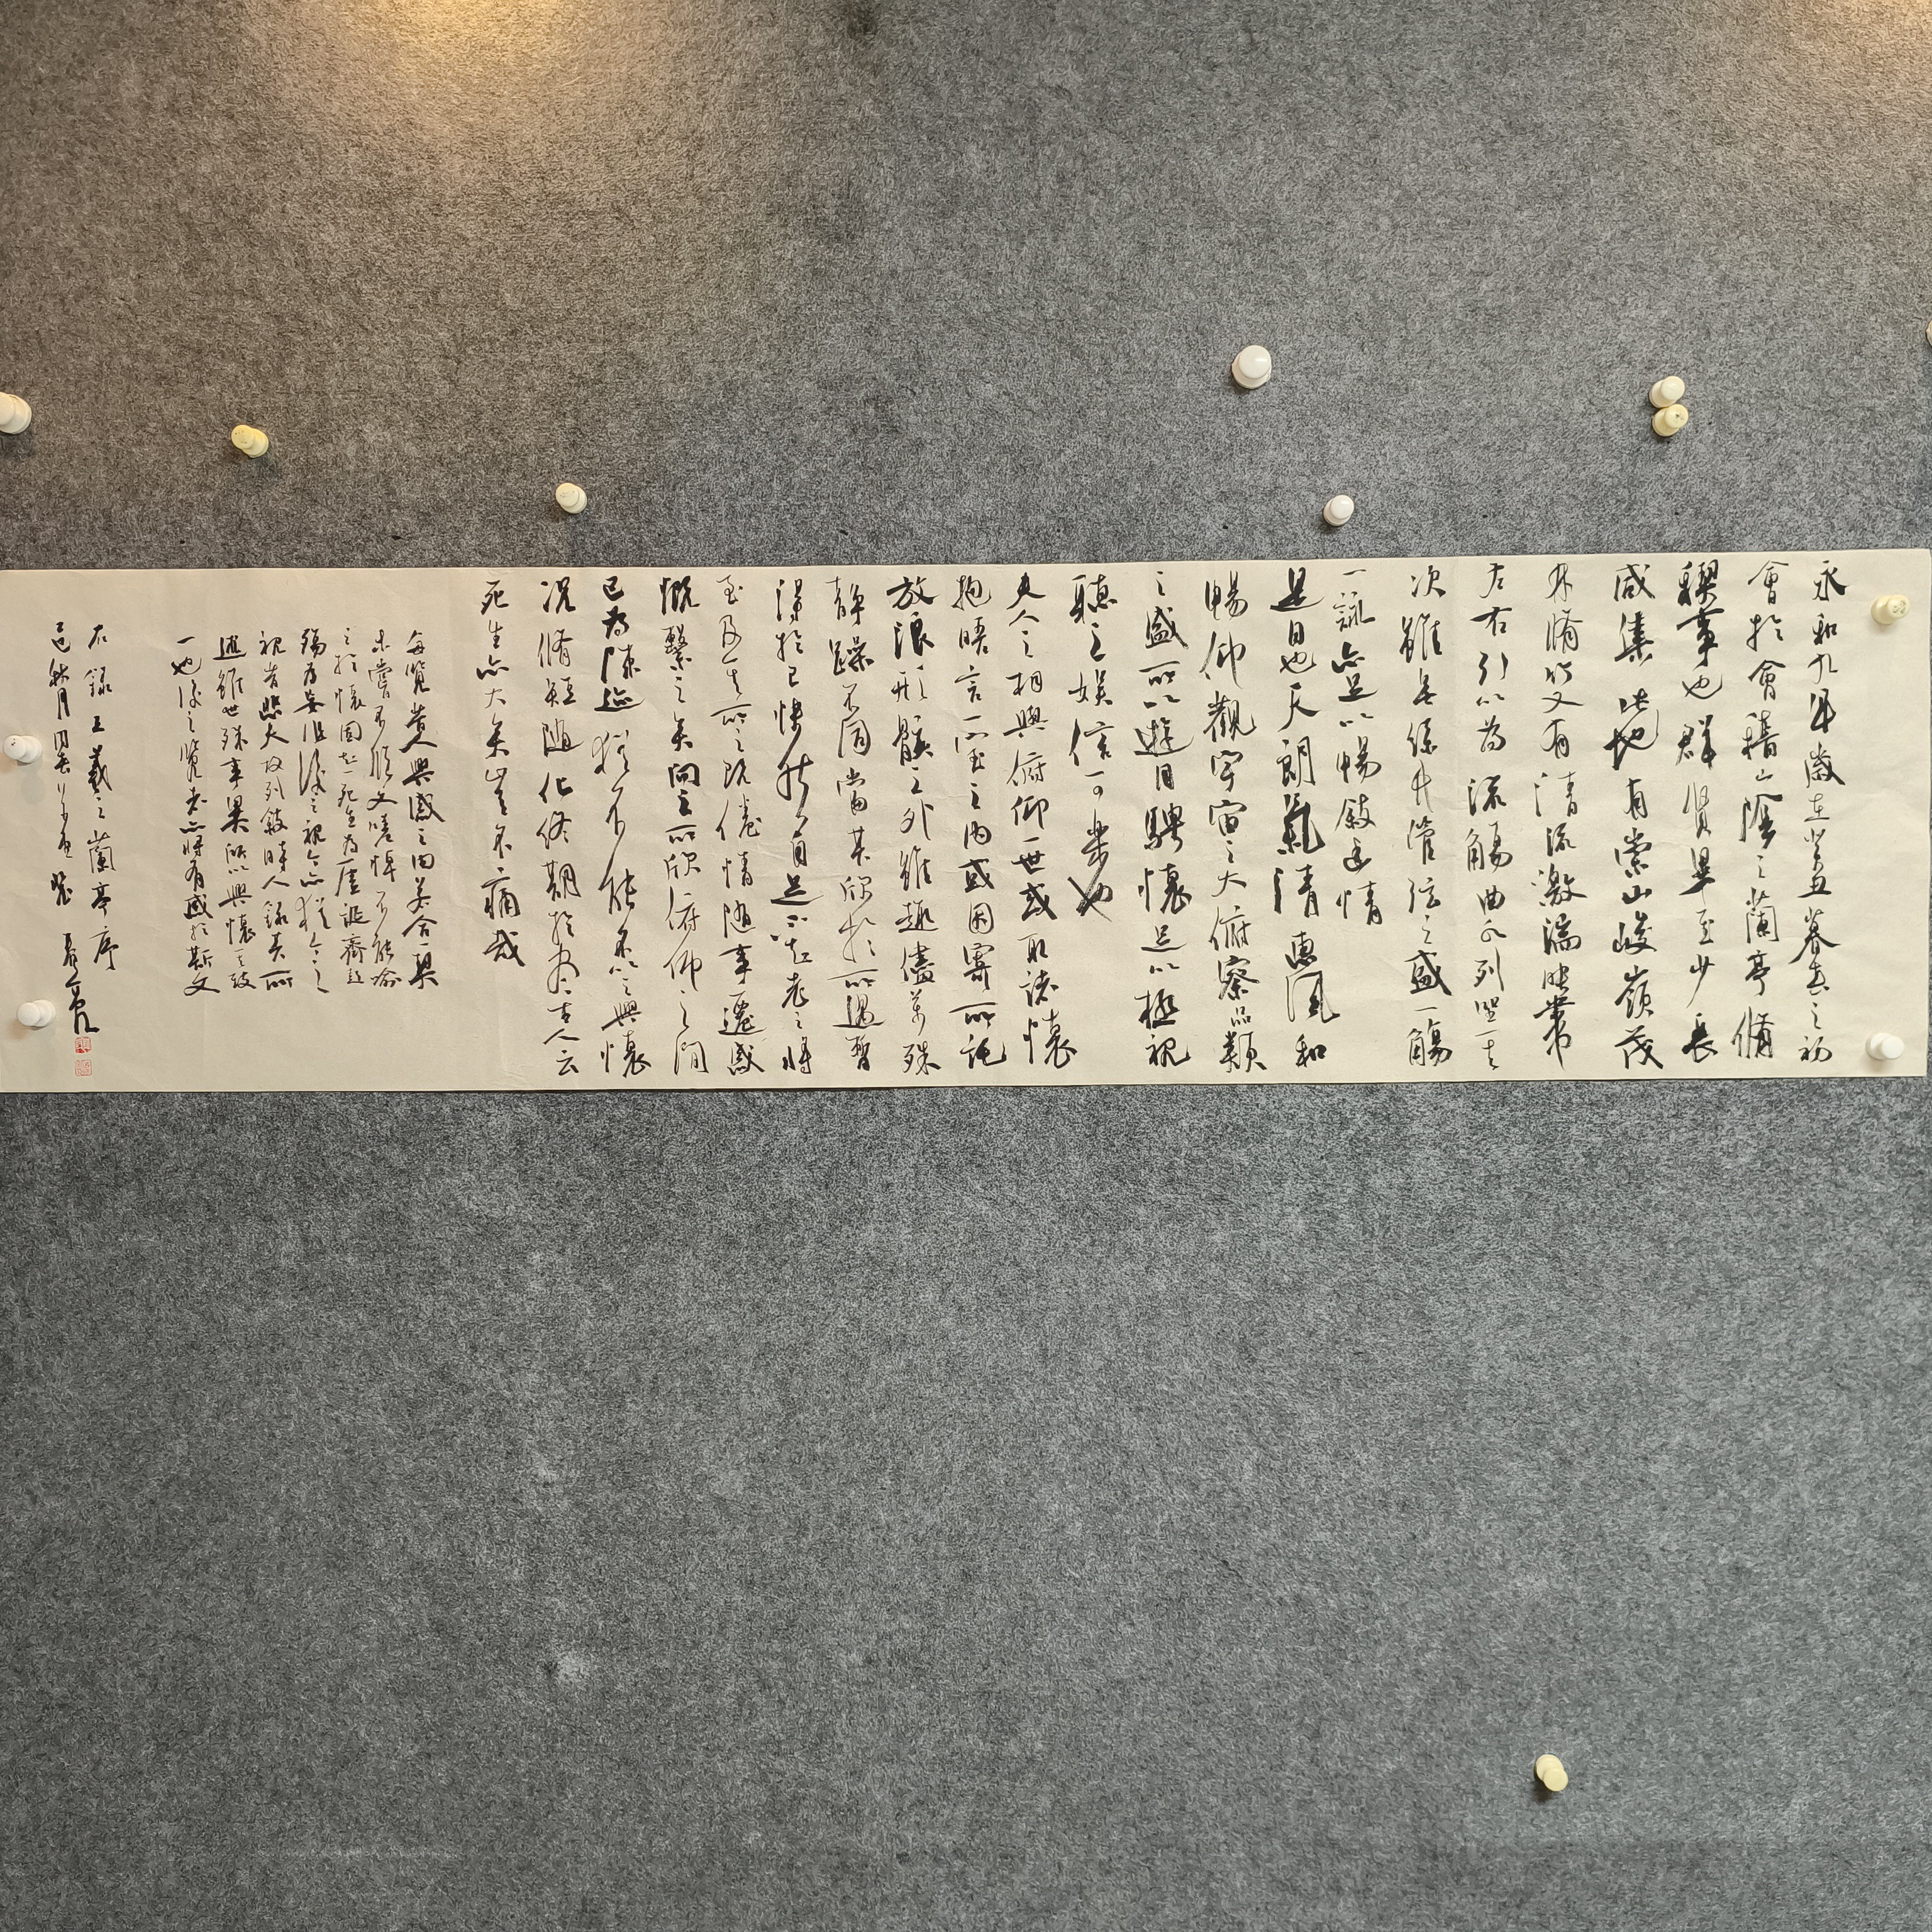 永和九年歲在癸丑暮春之初
會於會稽山陰之蘭亭脩
禊事也群賢畢至少長
咸集此地有崇山峻嶺茂
林脩竹又有清流激湍映帶
左右引以為流觴曲水列坐其
次雖無絲竹管弦之盛一觴
一詠亦足以暢敘幽情
是日也天朗氣清惠風和
暢仰觀宇宙之大俯察品類
之盛所以遊目騁懷足以極視
聽之娛信可樂也
夫人之相與俯仰一世或取諸懷
抱晤言一室之內或因寄所託
放浪形骸之外雖趣舍萬殊
靜躁不同當其欣於所遇暫
得於己快然自足不知老之將
至及其所之既倦情隨事遷感
慨繫之矣向之所欣俯仰之間
已為陳迹猶不能不以之興懷
況脩短隨化終期於盡古人云
死生亦大矣豈不痛哉
每覽昔人興感之由若合一契
未嘗不臨文嗟悼不能喻
之於懷固知一死生為虛誕齊彭
殤為妄作後之視今亦猶今之
視昔悲夫故列敘時人錄其所
述雖世殊事異所以興懷其致
一也後之覽者亦將有感於斯文
右錄王羲之蘭亭序
秋月